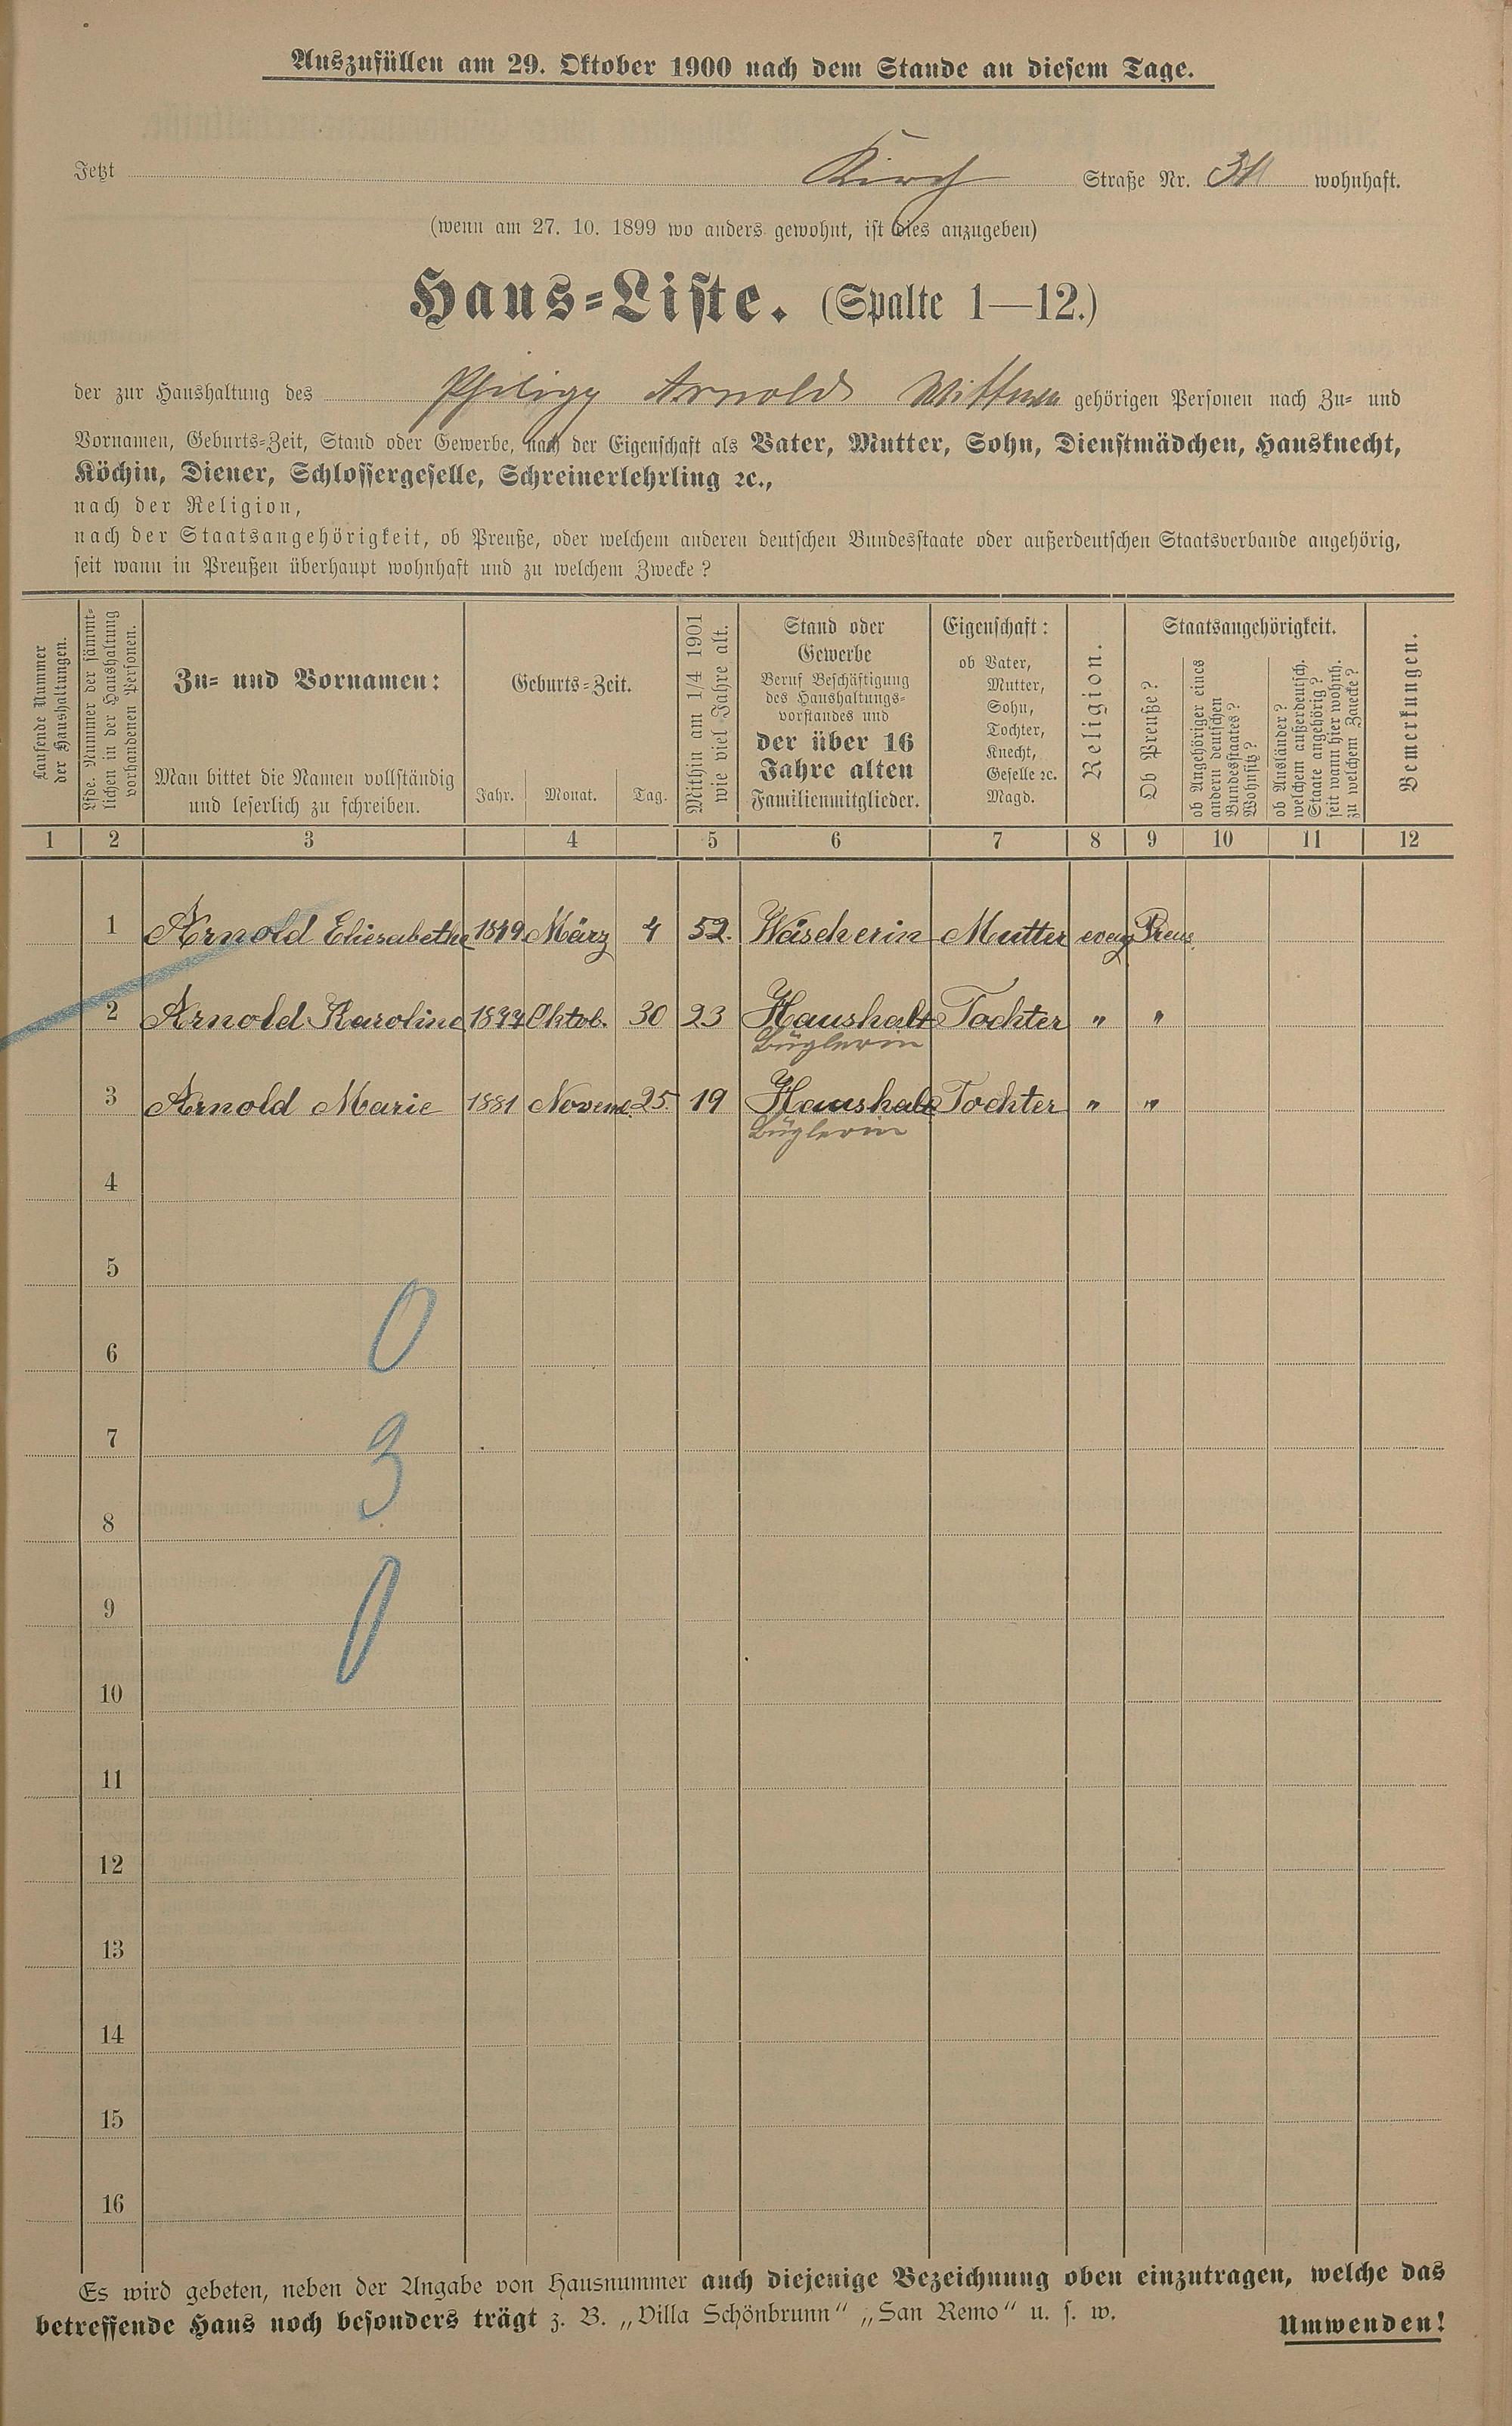 Auszufüllen am 29. Oktober 1900 nach dem Stande an diesem Tage.
Jetzt Kirch Straße Nr. wohnhaft.
(wenn am 27. 10. 1899 wo anders gewohnt, ist dies anzugeben)
Haus-Liste. (Spalte 1—12.)
der zur Haushaltung des Philipp Arnold Wittwe gehörigen Personen nach Zu- und
Vornamen, Geburts-Zeit, Stand oder Gewerbe, nach der Eigenschaft als Vater, Mutter, Sohn, Dienstmädchen, Hausknecht,
Köchin, Diener, Schlossergeselle, Schreinerlehrling ꝛc.,
nach der Religion,
nach der Staatsangehörigkeit, ob Preuße, oder welchem anderen deutschen Bundesstaate oder außerdeutschen Staatsverbande angehörig,
seit wann in Preußen überhaupt wohnhaft und zu welchem Zwecke?
Laufende Nummer
der Haushaltungen.
Lfde. Nummer der sämmt-
lichen in der Haushaltung
vorhandenen Personen.
Zu- und Vornamen:
Man bittet die Namen vollständig
und leserlich zu schreiben.
Geburts-Zeit.
Jahr. Monat. Tag.
Mithin am 1/4 1901
wie viel Jahre alt.
Stand oder
Gewerbe
Beruf Beschäftigung
des Haushaltungs-
vorstandes und
der über 16
Jahre alten
Familienmitglieder.
Eigenschaft:
ob Vater,
Mutter,
Sohn,
Tochter,
Knecht,
Geselle ꝛc.
Magd.
Religion.
Staatsangehörigkeit.
Ob Preuße?
ob Angehöriger eines
andern deutschen
Bundesstaates?
Wohnsitz?
ob Ausländer?
welchem außerdeutsch.
Staate angehörig?
seit wann hier wohnh.
zu welchem Zwecke?
Bemerkungen.
1 2 3 4 5 6 7 8 9 10 11 12
1 Arnold Eliesabetha 1849 März 4 52. Wäscherin Mutter evang Preus.
2 Arnold Karoline 1877 Oktob. 30 23 Haushalt Tochter " "
Büglerin
3 Arnold Marie 1881 Novemb. 25. 19 Haushalt Tochter " "
Büglerin
4
5
0
6
7
3
8
9
0
10
11
12
13
14
15
16
Es wird gebeten, neben der Angabe von Hausnummer auch diejenige Bezeichnung oben einzutragen, welche das
betreffende Haus noch besonders trägt z. B. „Villa Schönbrunn“ „San Remo“ u. s. w.
Umwenden!